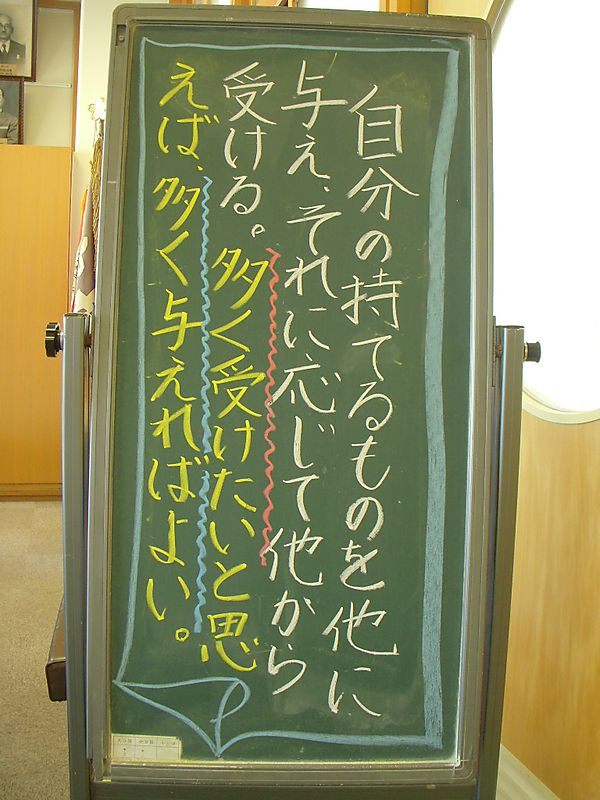 自分の持てるものを他に
与え、それに応じて他から
受ける。多く受けたいと思
えば、多く与えればよい。